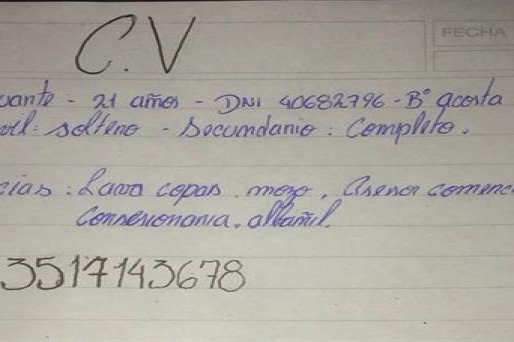 FECHA
C.V
vante - 21 años - DNI 40682796 - B° acosta
vil: soltero - Secundario: Completo.
cias: Lava copas. mozo. Asesor comerc
Consesionaria. albañil.
3517143678